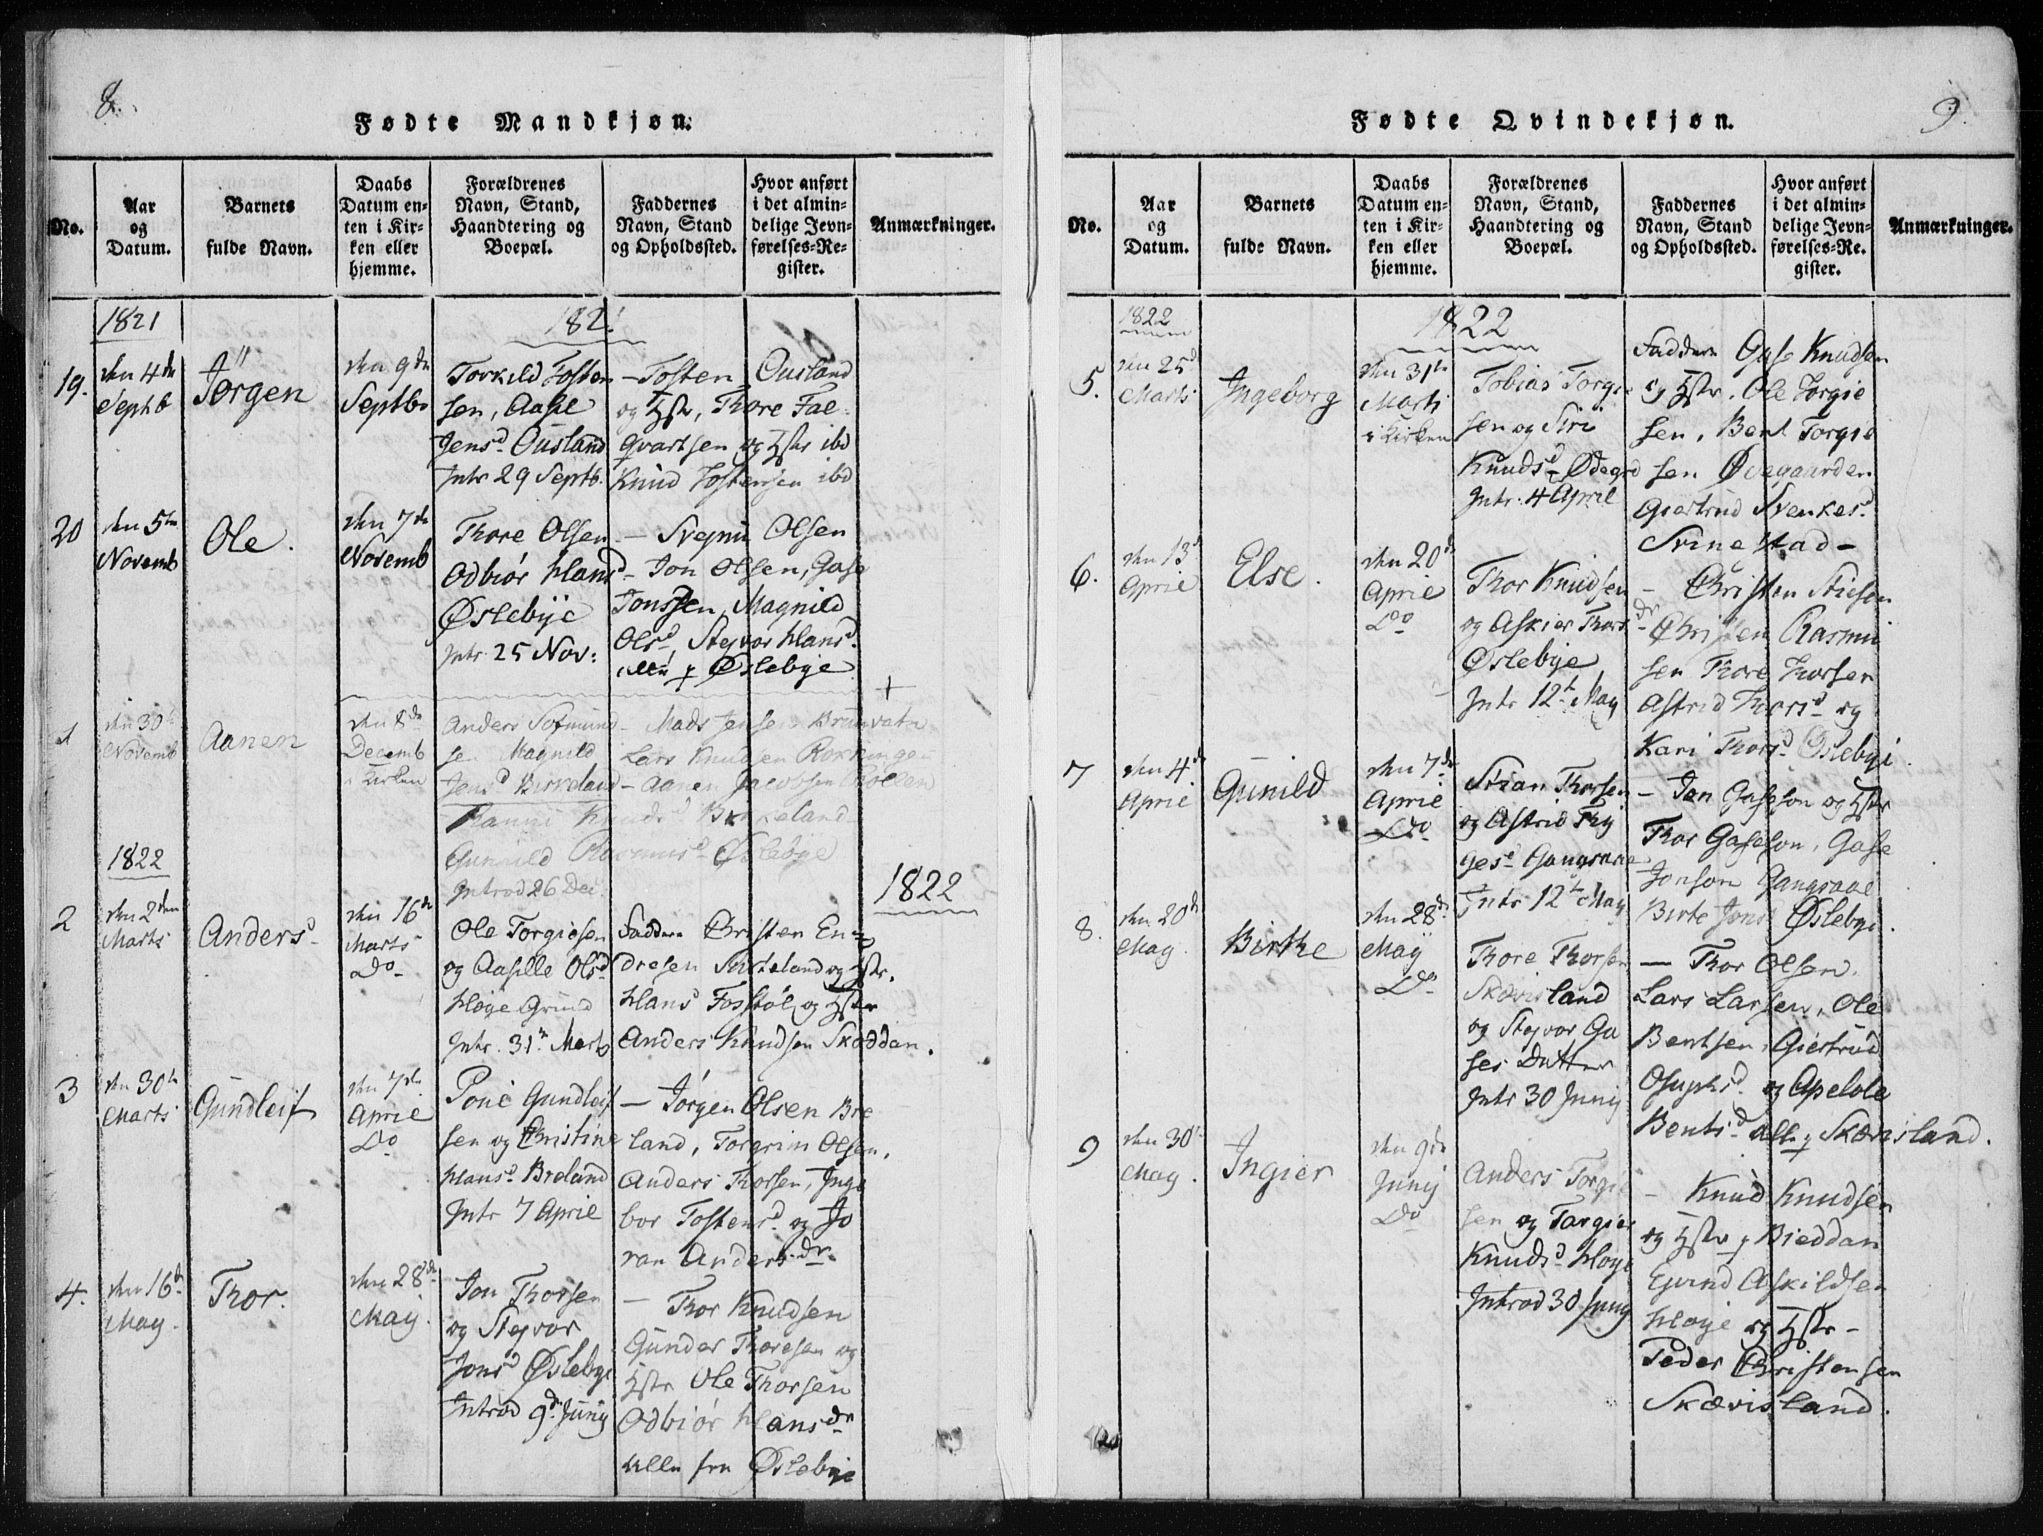 8.
Fødte Mandkjøn.
No.
Aar
og
Datum.
Barnets
fulde Navn.
Daabs
Datum en-
ten i Kir-
ken eller
hjemme.
Forældrenes
Navn, Stand,
Haandtering og
Boepæl.
Faddernes
Navn, Stand
og Opholdssted.
Hvor anført
i det almin-
delige Jevn-
førelses-Re-
gister.
Anmærkninger.
1821
182
19.
den 4de
Septb
Jørgen
den 9de
Septbr
Torkild Tosten
sen, Aase
Jensd. Ousland
Intr 29 Septb.
- Tosten Ousland
og Hstr, Thore Fae-
qvartsen og Hstr ibd
Knud Tostensen ibd
20
den 5te
Novemb
Ole.
den 7de
Novemb
Thore Olsen
Odbiør Hansd
Øslebye
Intr. 25 Nov:
- Svejnu Olsen
- Jon Olsen, Gase
Jonssen, Magnild
Olsd, Stejvor Hansd.
alle f Øslebye
1
den 30te
Novemb
Aanen
den 8de
Decemb
i Kirken
Anders Sofmund
sen Magnild
Jensd Birkeland
- Mads Jensen Brunvatn
Lars Knudsen Rorkinge-
- Aanen Jacobsen
Knudsd Birkeland
Gunnild Rasmusd Øslebye
Introd 26 Dec.
1822
1822
2
den 2den
Marts
Anders
den 16de
Marts
Do
Ole Torgiesen
og Aasille Olsd
Høye Grund
Intr. 31te Marts
Faddere Christen En-
dresen Sasteland og Hstr.
Hans Fosstøl og Hstr
Anders Knudsen Skoddan.
3
den 30te
Marts
Gundleif
den 7de
Aprie
Do
Poue Gundleif
sen og Christine
Hansd Breland
Intr 7 Aprie
- Jørgen Olsen Bre
land, Torgrim Olsen,
Anders Thorsen, Inge
bor Tostensd. og Jo
ran Anders dr.
4.
den 16de
May.
Thor.
den 28de
May.
Jon Thorsen
og Stejvor
Jonsd Øslebye
Introd 9de Junij
- Thor Knudsen
Gunder Thoresen og
Hstr Ole Thorsen
Odbiør Hansdr
alle fra Øslebye
9.
Fødte Qvindekjøn.
No.
Aar
og
Datum.
Barnets
fulde Navn.
Daabs
Datum en-
ten i Kir-
ken eller
hjemme.
Forældrenes
Navn, Stand,
Haandtering og
Boepæl.
Faddernes
Navn, Stand
og Opholdssted.
Hvor anført
i det almin-
delige Jevn-
førelses-Re-
gister.
Anmærkninger.
1822
1822
5.
den 25d
Marts
Ingeborg
den 31te
Marts
i Kirken
Tobias Torgie
sen og Siri
Knudsd Ødegrd
Intr. 4 Aprie
Faddere Gase Knudsen
og Hstr. Ole Torgie
sen, Bent Torgie
sen Øvegaarden
Giertrud Svenkesd.
Svinestad-
6.
den 13d
Aprie
Else.
den 20d
Aprie
Do
Thor Knudsen
og Askier Thorsdr
Øslebye
Intr 12te May
- Christen Stiesen
- Christen Rasmu
sen Thore Thorsen
Astrid Thorsd og
Kari Thorsd Øslebye.
7
den 4de
Aprie
Gunild
den 7de
Aprie
Do
Stian Thorsen
og Astrid Thy
gesd Gangsaae
Intr 12te May
- Jon Gaseson og Hstr
Thor Gaseson, Gase
Jonson Gangsaae
Birte Jonsd Øslebye.
8.
den 20de
May
Birthe
den 28de
May
Do
Thore Thorsen
Skævisland
og Stejvor Ga
ses Datter
Intr 30 Junij
- Thor Olsen.
Lars Larsen, Ole
Bentsen, Giertrud
Osuphsd og Apelole
Bentsd alle f Skævisland.
9
den 30te
May.
Ingier
den 9de
Junij
Do
Anders Torgie
sen og Targier
Knudsd Høye
Introd 30 Junij
- Knud Knudsen
og Hstr f Bieddan
Ejvind Askildsen
Høye og Hstr-
Peder Christensen
Skævisland.